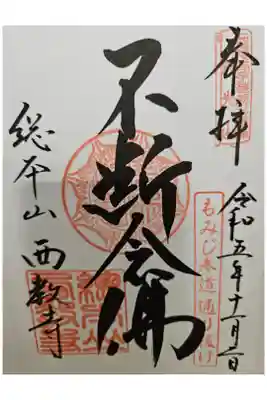 奉拝
令和五年十一月二日
もみじ参道通り抜け
不断念佛
総本山 西教寺